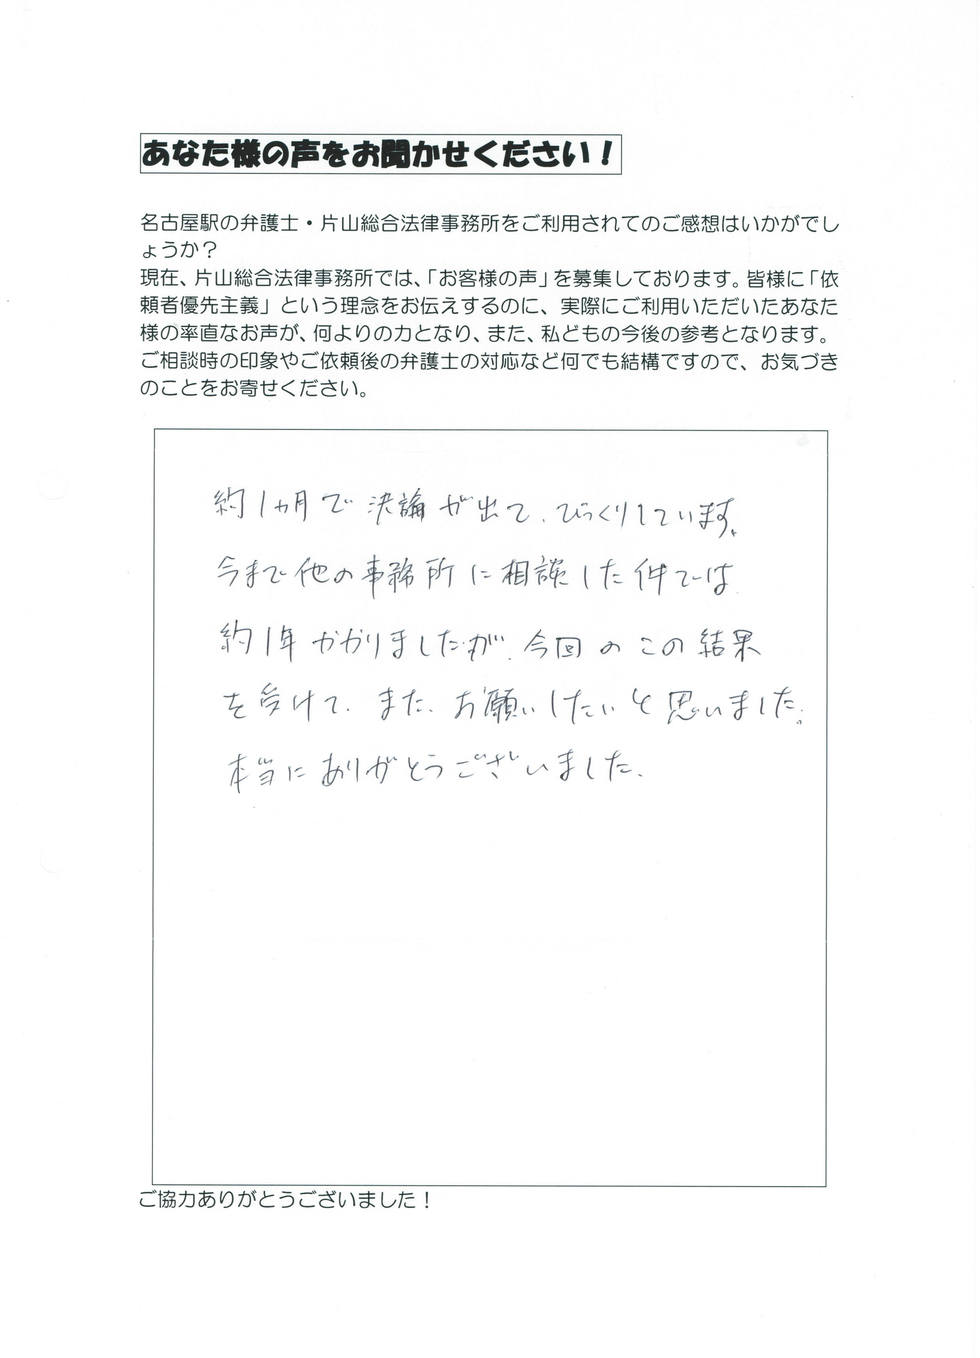 あなた様の声をお聞かせください！
名古屋駅の弁護士・片山総合法律事務所をご利用されてのご感想はいかがでし
ょうか？
現在、片山総合法律事務所では、「お客様の声」を募集しております。皆様に「依
頼者優先主義」という理念をお伝えするのに、実際にご利用いただいたあなた
様の率直なお声が、何よりの力となり、また、私どもの今後の参考となります。
ご相談時の印象やご依頼後の弁護士の対応など何でも結構ですので、お気づき
のことをお寄せください。
約1ヵ月で決論が出て、びっくりしています。
今まで他の事務所に相談した件では
約1年かかりましたが、今回のこの結果
を受けて、また、お願いしたいと思いました。
本当にありがとうございました。
ご協力ありがとうございました！